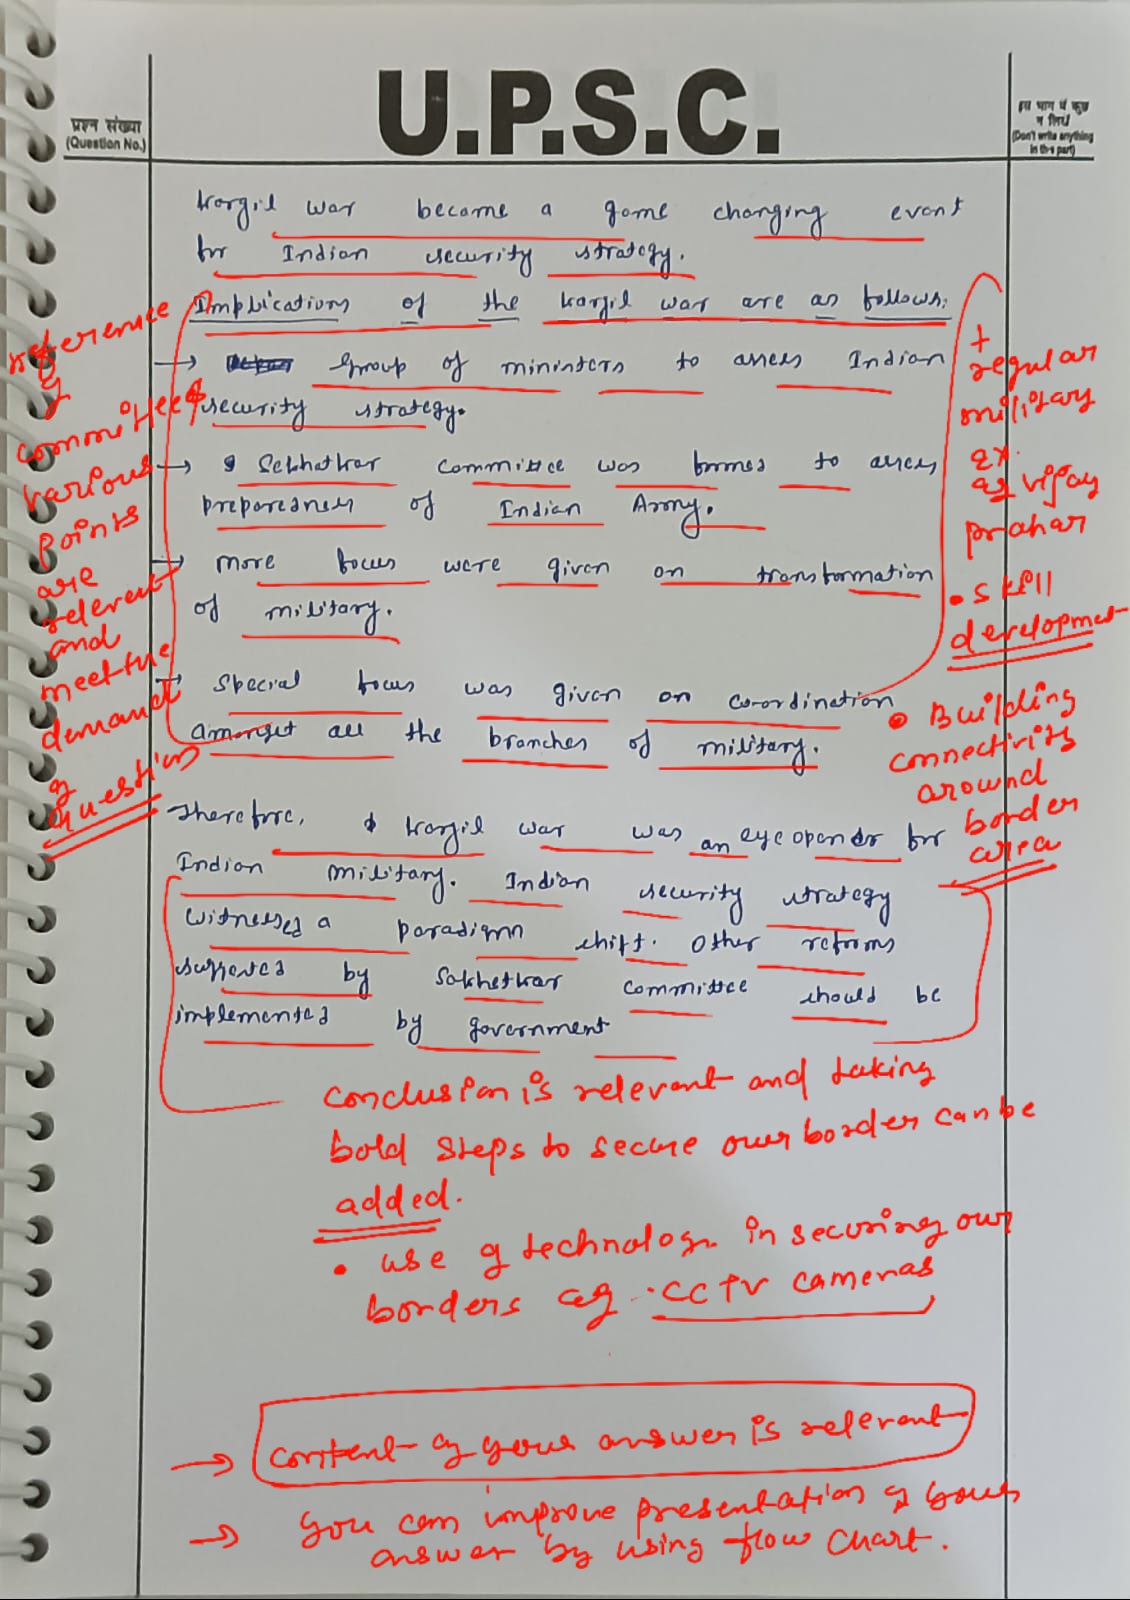 U.P.S.C.
प्रश्न संख्या
(Question No.)
इस भाग में कुछ
न लिखें
(Don't write anything
in this part)
Kargil war became a game changing event
for Indian security strategy.
Implications of the Kargil war are as follows:
→ Group of mininters to assess Indian
security strategy.
→ Sekhatkar committee was formed to assess
preparedness of Indian Army.
→ More focus were given on transformation
of military.
→ Special focus was given on co-ordination
amongst all the branches of military.
Therefore, Kargil war was an eye opener for
Indian military. Indian security strategy
witnessed a paradigm shift. Other reforms
suggested by Sekhetkar committee should be
implemented by government
reference
of
committees
various
points
are
relevent
and
meet the
demand
of
question
+
regular
military
ex.
eg vijay
prahar
• Skill
development
• Building
connectivity
around
border
area
Conclusion is relevant and taking
bold steps to secure our border can be
added.
• use of technology in securing our
borders eg. CCTV cameras
→ content of your answer is relevant
→ you can improve presentation of your
answer by using flow chart.